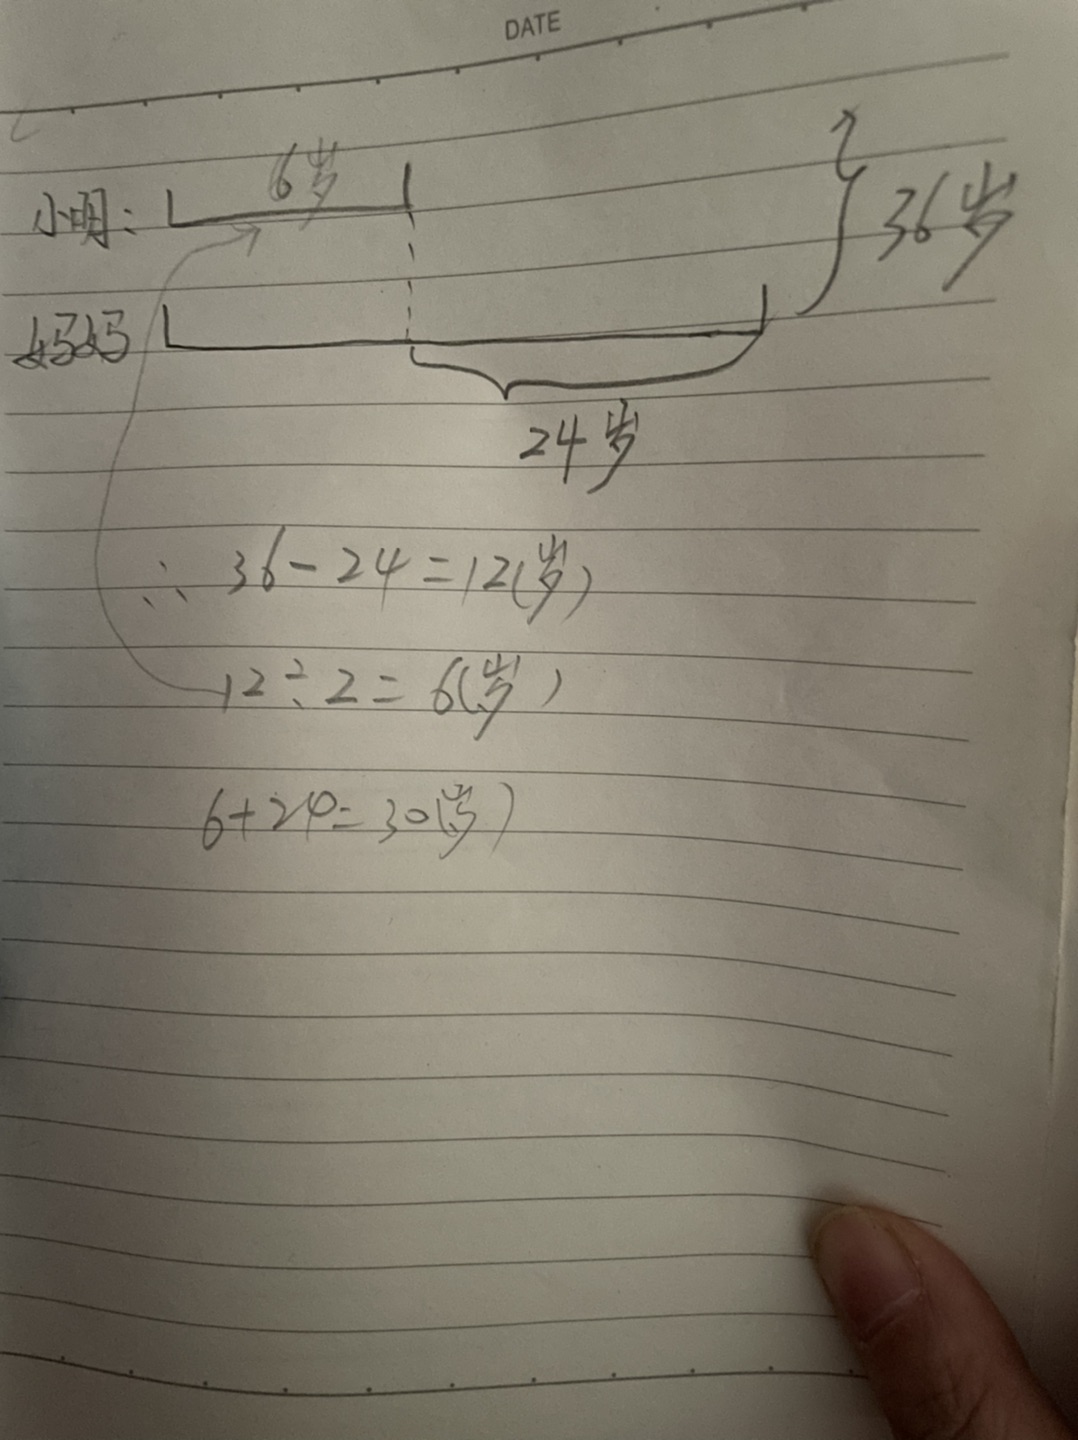 DATE
6岁
小明：
36岁
妈妈
24岁
∴ 36-24=12(岁)
12÷2=6(岁)
6+24=30(岁)